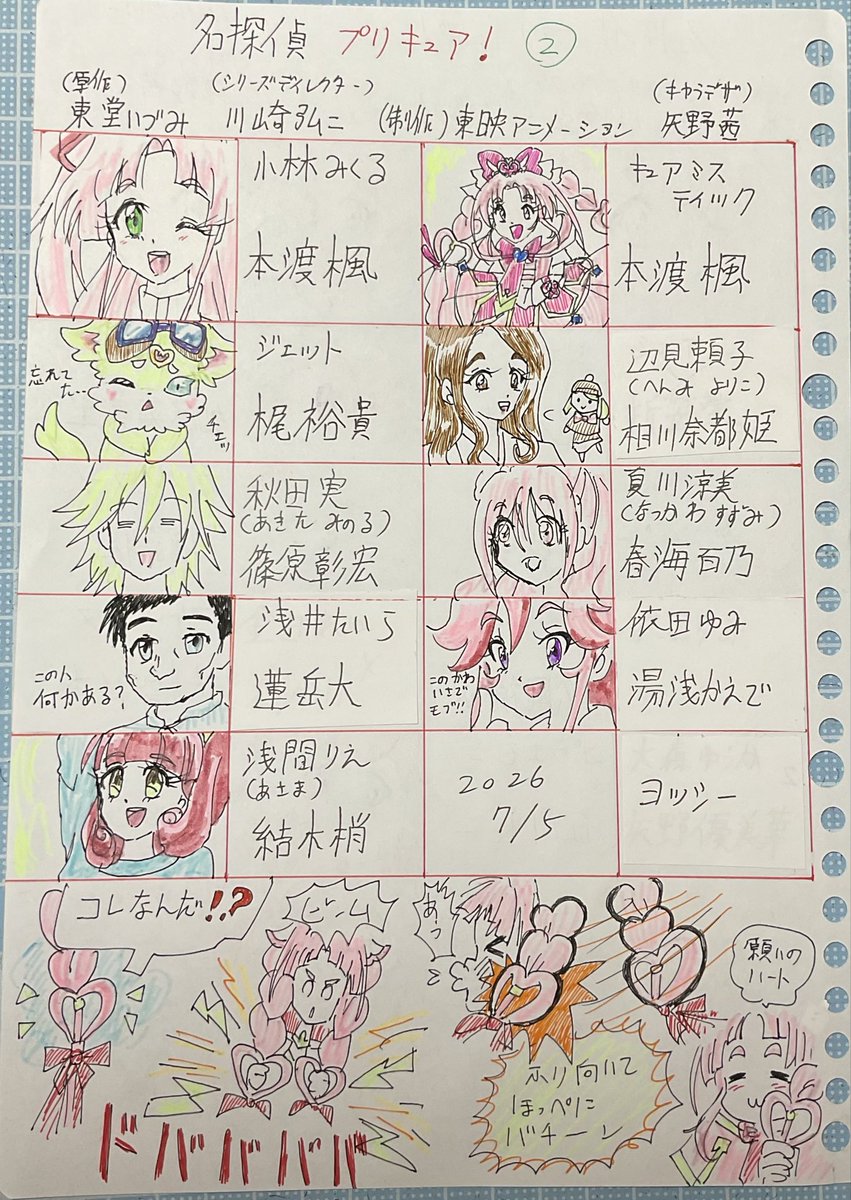 名探偵 プリキュア! ②
(原作)
東堂いづみ
(シリーズディレクター)
川崎弘二
(制作)東映アニメーション
(キャラデザ)
矢野茜
小林みくる
本渡楓
キュアミス
ティック
本渡楓
忘れて
た…
チェッ
ジェット
梶裕貴
辺見頼子
(へんみ よりこ)
相川奈都姫
秋田実
(あきた みのる)
篠原彰宏
夏川涼美
(なつかわ すずみ)
春海百乃
この人
何かある?
浅井たいら
蓮岳大
このかわ
いさで
モブ!!
依田ゆみ
湯浅かえで
浅間りえ
(あさま)
結木梢
2026
7/5
ヨッシー
コレなんだ!?
ビーム
ドババババ
あっ
ふり向いて
ほっぺに
バチーン
願いの
ハート